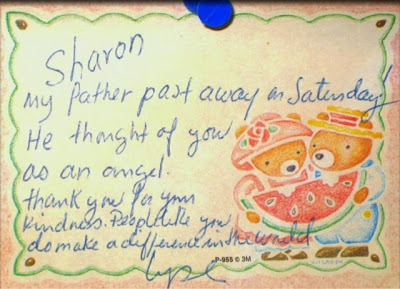 Sharon
My Father past away on Saturday!
He thought of you
as an angel.
Thank you for your
kindness. People like you
do make a difference in the world
P-955 © 3M